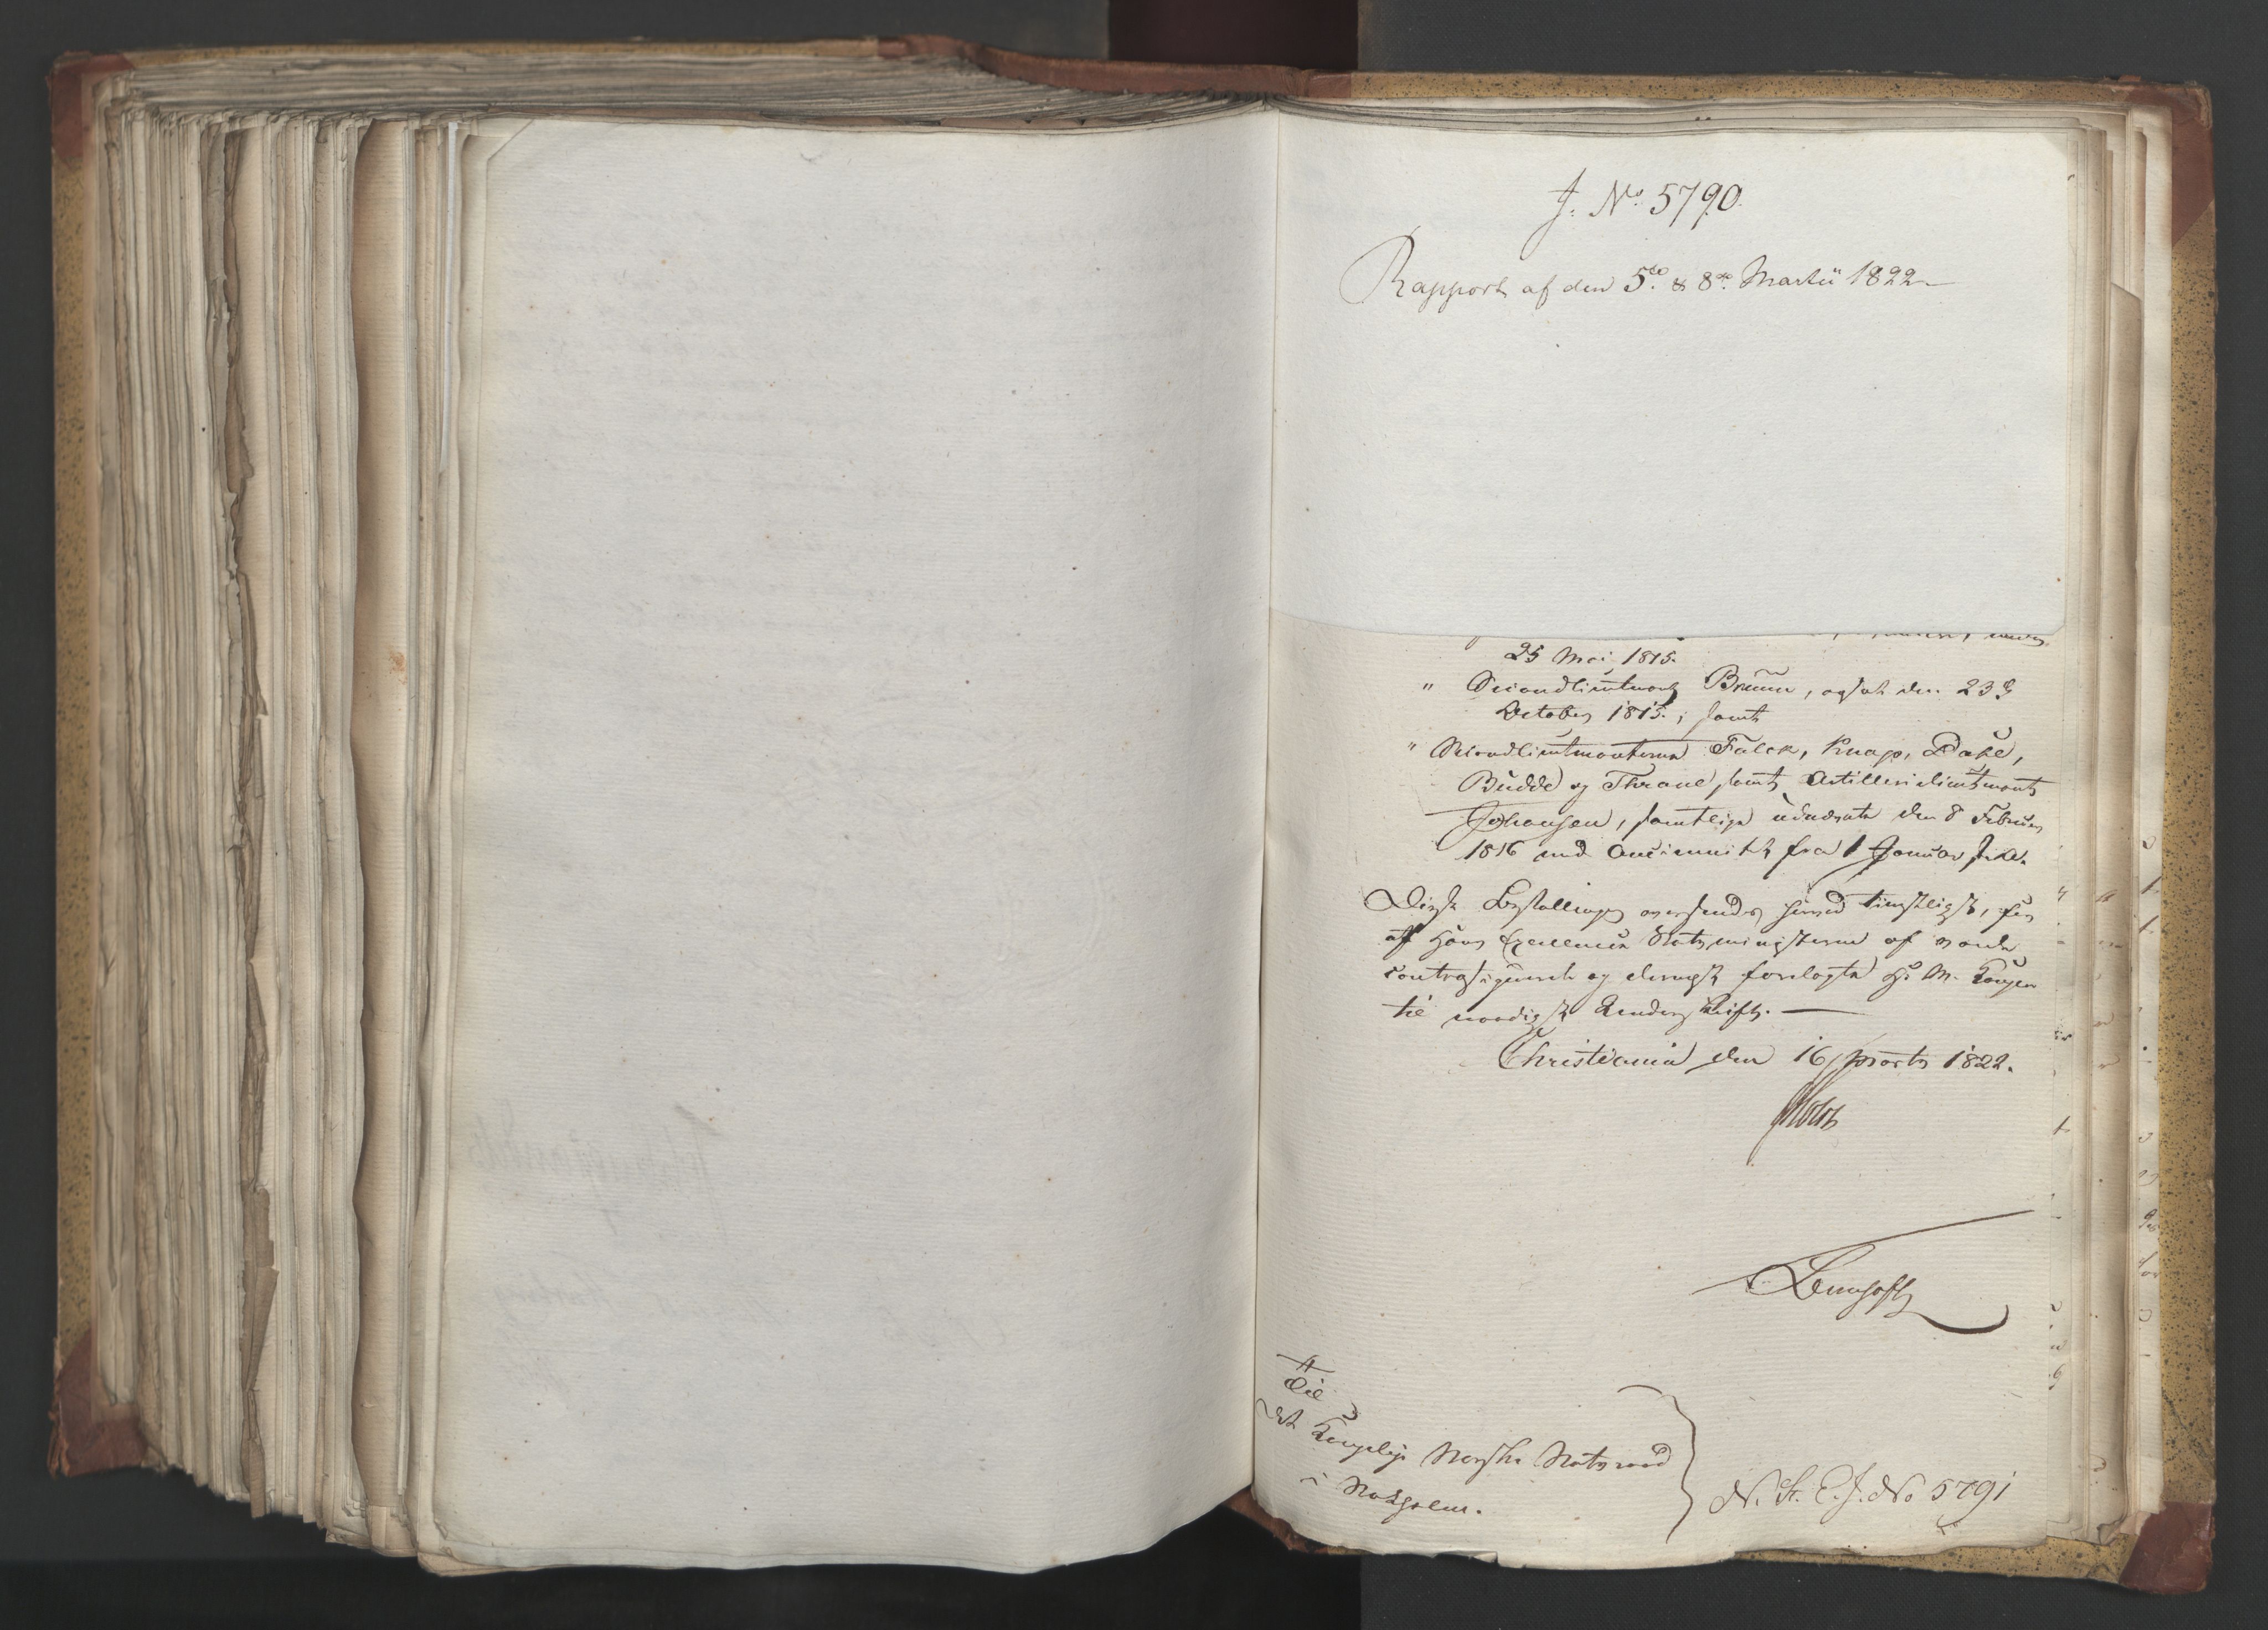 J. No. 5790.
Rapport af den 5te & 8de Martii 1822
25 Mai 1815.
" Secondlieutenant Bruun, ogsaa den 23de
October 1815.; samt
" Secondlieutenanterne Falck, Knap, Dahl,
Budde og Thrane samt Artillerielieutenant
Johansen, samtlige udnævnte den 8 Februar
1816 med Anciennitet fra 1 Januar s. A.
Disse Bestallinger oversendes hermed tienstligst, for
af Hans Excellence Statsministeren at vorde
contrasignerede og dernæst forelagte Hs. M. Kongen
til naadigst Underskrift. —
Christiania den 16 Marts 1822.
Holst
Til
Det Kongelige Norske Statsraad
i Stokholm.
N. St. E. J. No 5791